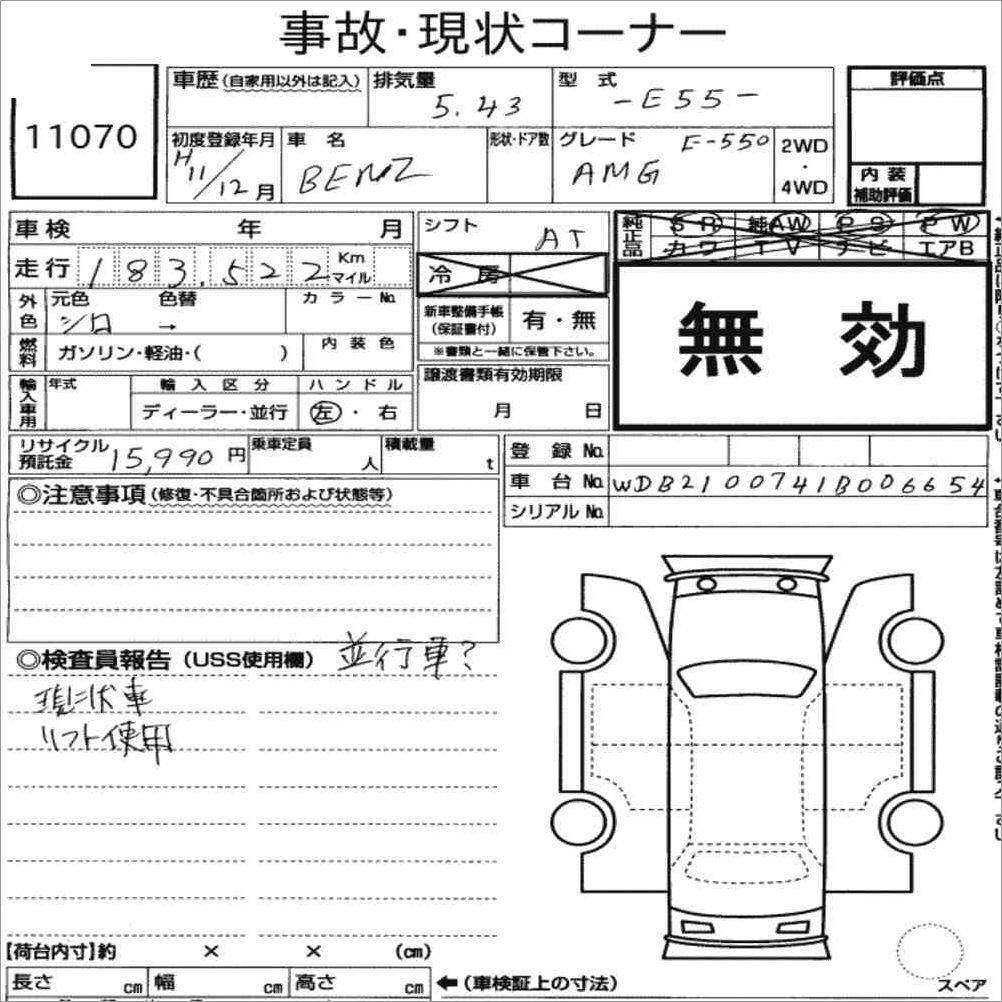 事故・現状コーナー
11070
車歴(自家用以外は記入)
排気量
5.43
型 式
-E55-
評価点
初度登録年月
H11/12月
車 名
BENZ
形状・ドア数
グレード E-550
AMG
2WD
・
4WD
内 装
補助評価
車検 年 月
シフト
AT
純正品
S R 純AW P S P W
カワ T V ナビ エアB
走行 183.522 Km
マイル
冷 房
外色
元色 色替
シロ →
カラーNo.
新車整備手帳
(保証書付)
有・無
※書類と一緒に保管下さい。
無 効
燃料
ガソリン・軽油・( )
内 装 色
輸入車用
年式
輸 入 区 分
ディーラー・並行
ハ ン ド ル
左・右
譲渡書類有効期限
月 日
リサイクル
預託金 15,990円
乗車定員
人
積載量
t
登 録 No.
車 台 No. WDB2100741B006654
シリアル No.
◎注意事項(修復・不具合箇所および状態等)
◎検査員報告(USS使用欄) 並行車?
現状車
リフト使用
【荷台内寸】約 × × (cm)
長さ cm 幅 cm 高さ cm ←(車検証上の寸法)
スペア